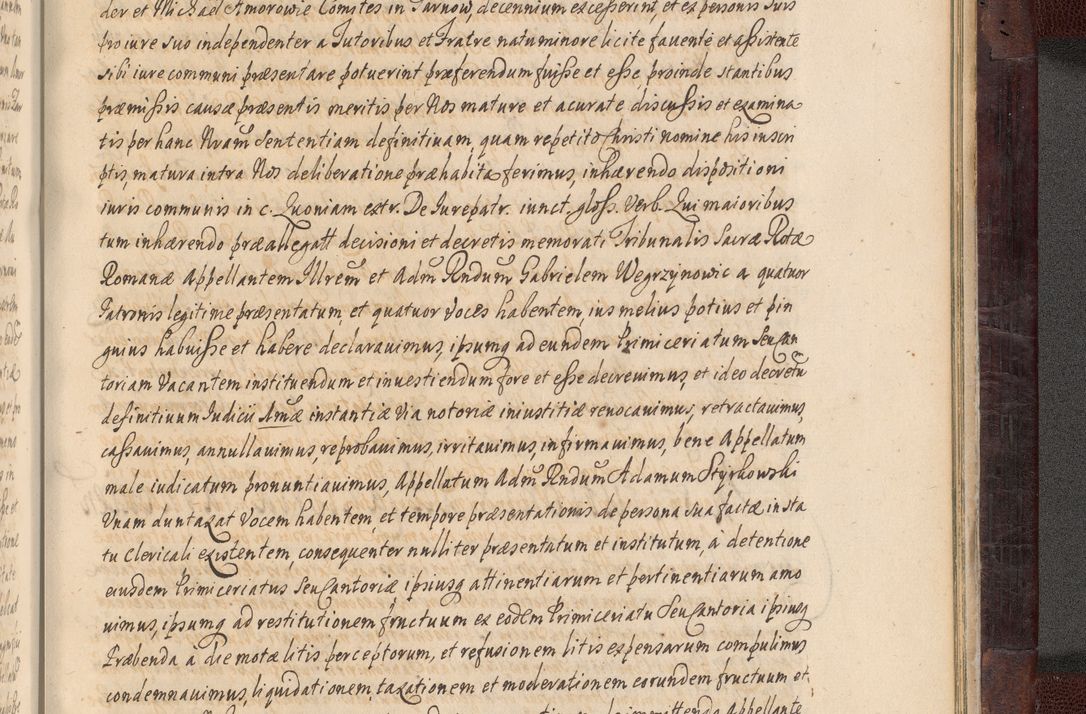 der et Michael Amorowie Comites in Tarnow, decennium excesserint, et ex personis suis
pro iure suo independenter a Tutoribus et Fratre natu minore licite favente et assistente
sibi iure communi præsentare potuerint præferendum fuisse et esse, proinde stantibus
præmissis causæ præsentis meritis per Nos mature et acurate discussis et examina
tis per hanc Nram Sententiam definitivam, quam repetito Christi nomine his inscri
ptis, matura intra Nos deliberatione præhabita ferimus, inhærendo dispositioni
iuris communis in c. Quoniam extr. De Iurepatr. iunct. gloss. Verb. Qui maioribus
tum inhærendo præallegatt decisioni et decretis memorati Tribunalis Sacræ Rotæ
Romanæ Appellantem Illrem et Adm Rndum Gabrielem Wegrzynowic a quatuor
Patronis legitime præsentatum, et quatuor voces habentem, ius melius potius et pin
guius habuisse et habere declaravimus, ipsumq ad eundem Primiceriatum Seu Can
toriam Vacantem instituendum et investiendum fore et esse decrevimus, et ideo decretu
definitivum Iudicii Amæ instantiæ Via notoriæ iniustitiæ revocavimus, retractavimus,
cassavimus, annullavimus, reprobavimus, irritavimus, infirmavimus, bene Appellatum
male iudicatum pronuntiavimus, Appellatum Adm Rndum Adamum Styrkowski
Vnam duntaxat Vocem habentem, et tempore præsentationis de persona sua factæ in sta
tu Clericali existentem, consequenter nulliter præsentatum et institutum, a detentione
eiusdem Primiceriatus Seu Cantoriæ ipsiusq attinentiarum et pertinentiarum amo
vimus, ipsumq ad restitutionem fructuum ex eodem Primiceriatu Seu Cantoria ipsiusq
Præbenda a die motæ litis perceptorum, et refusionem litis expensarum compulimus
condemnavimus, liquidationem, taxationem et moderationem eorundem fructuum et